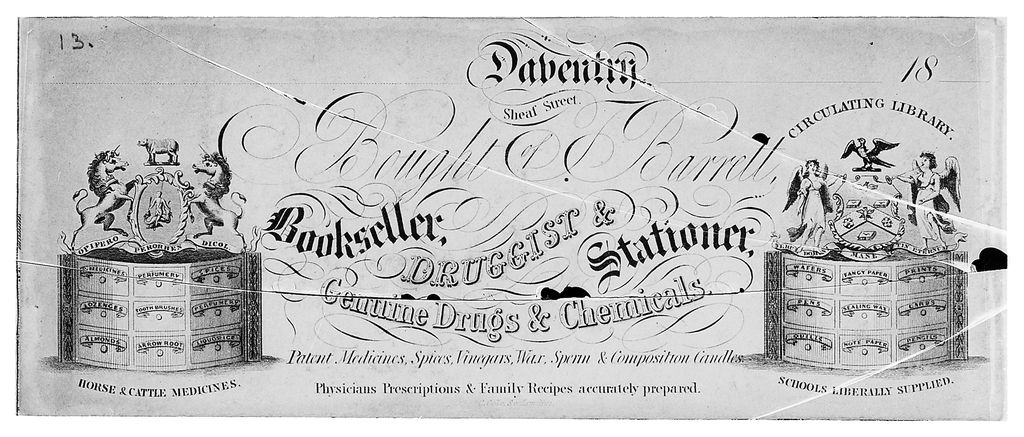 13.
Daventry.
Sheaf Street.
18
Bought of J. Barrett,
Bookseller,
DRUGGIST &
Stationer,
Genuine Drugs & Chemicals
Patent Medicines, Spices, Vinegars, Wax, Sperm & Composition Candles.
Physicians Prescriptions & Family Recipes accurately prepared.
OPIFERQ PERORBEM DICOR
P. MEDICINES
PERFUMERY
SPICES
LOZENGES
TOOTH BRUSHES
PERFUMERY
ALMONDS
ARROW ROOT
LIQUORICE
HORSE & CATTLE MEDICINES.
CIRCULATING LIBRARY.
VERBUM DOMINI MANET IN ETERNUM
WAFERS
FANCY PAPER
PRINTS
PENS
SEALING WAX
CARDS
QUILLS
NOTE PAPER
PENCILS
SCHOOLS LIBERALLY SUPPLIED.